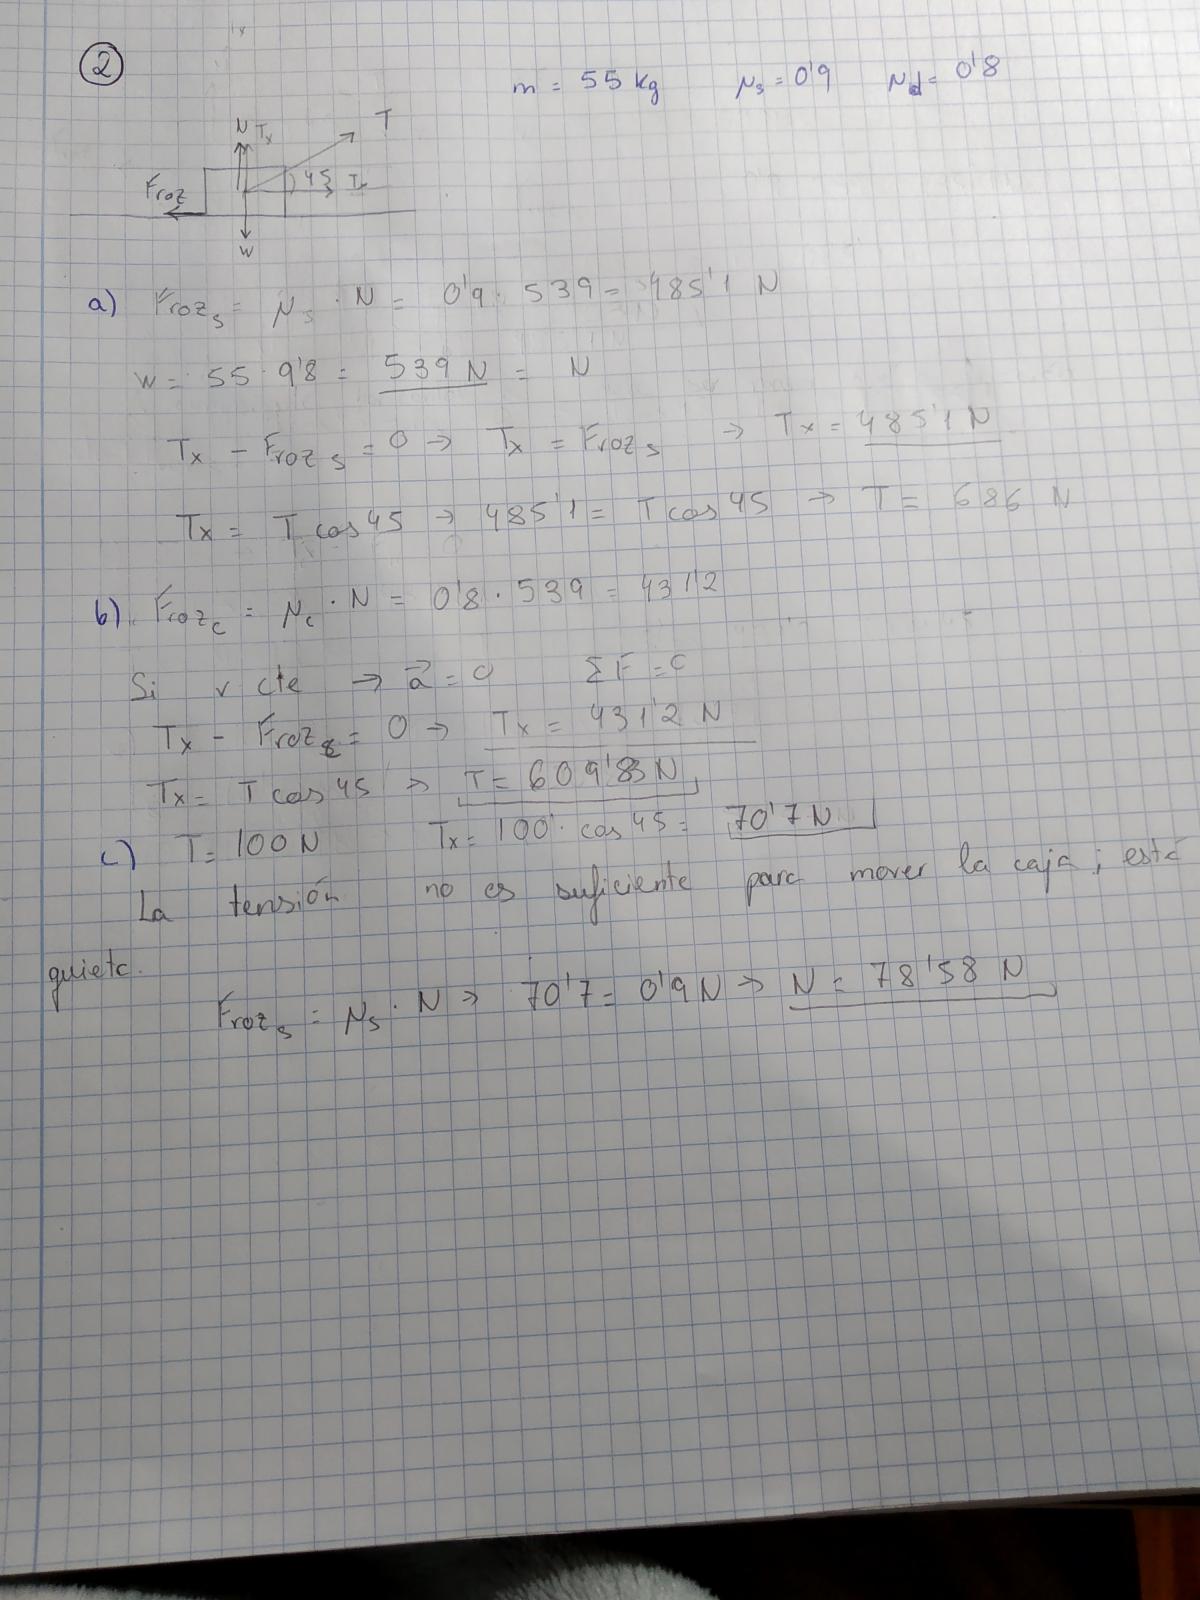 2
m = 55 kg μs = 0'9 μd = 0'8
N Tx T
Froz 45
W
a) Frozs = μs · N = 0'9 · 539 = 485'1 N
W = 55 · 9'8 = 539 N = N
Tx - Frozs = 0 → Tx = Frozs → Tx = 485'1 N
Tx = T cos 45 → 485'1 = T cos 45 → T = 686 N
b) Frozc = μc · N = 0'8 · 539 = 431'2
Si v cte → a⃗ = 0 ΣF = 0
Tx - Froz = 0 → Tx = 431'2 N
Tx = T cos 45 → T = 609'83 N
c) T = 100 N Tx = 100 · cos 45 = 70'7 N
La tensión no es suficiente para mover la caja; está
quieta.
Frozs = μs · N → 70'7 = 0'9 N → N = 78'58 N